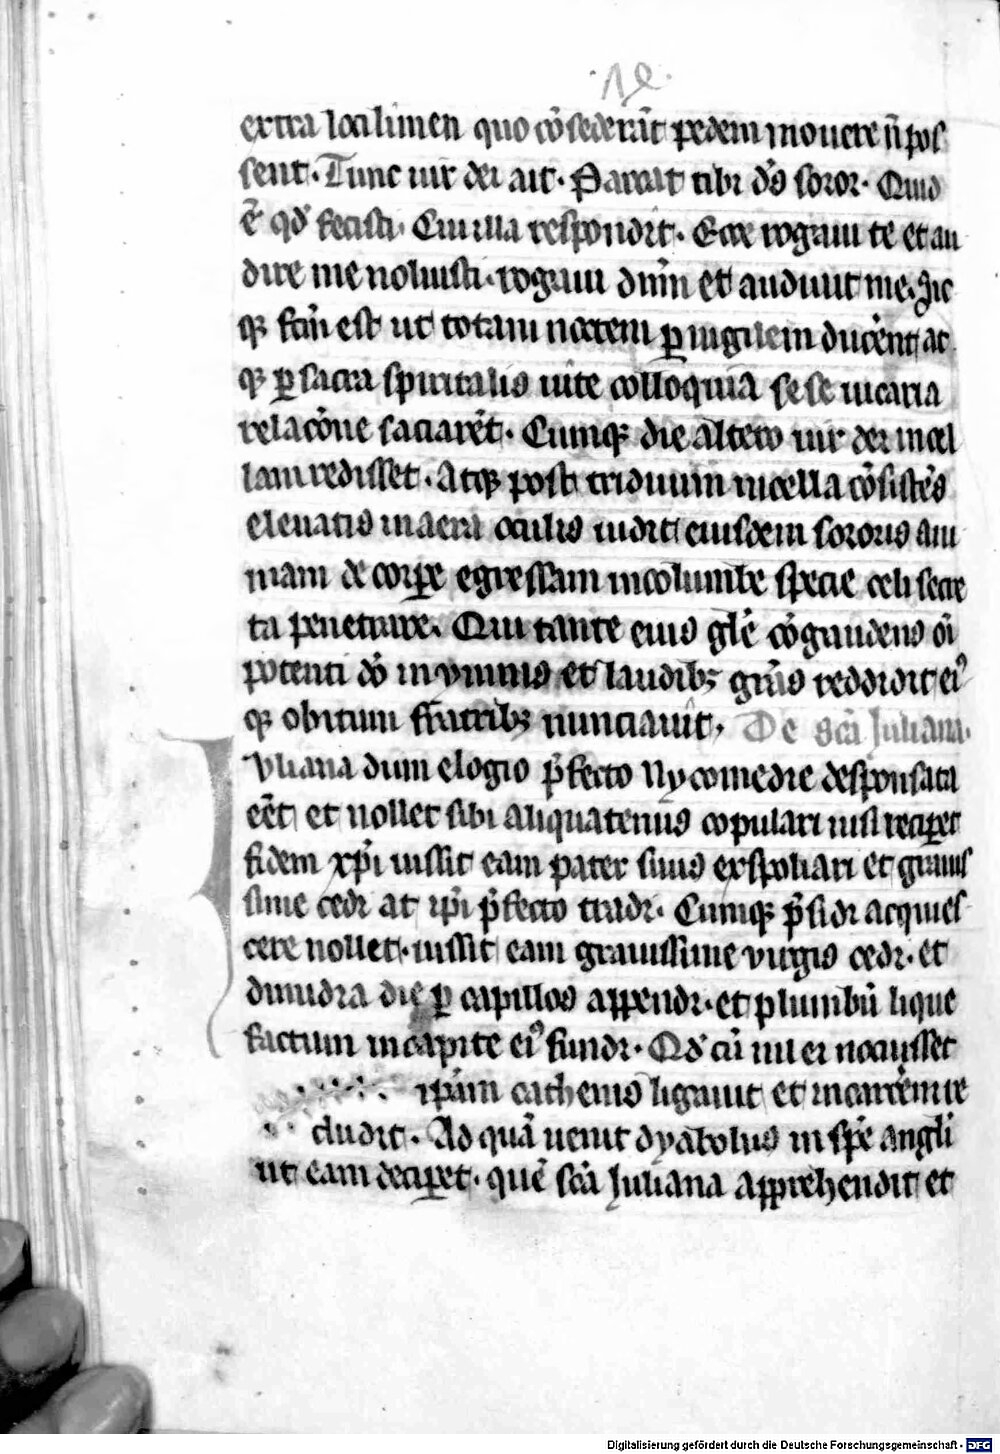 extra loci limen quo cōsederāt pedem mouere n̄ pos
sent. Tunc uir dei ait. Parcat tibi dš soror. Quid
ē qđ fecisti. Cui illa respondit. Ecce rogaui te et au
dire me noluisti. rogaui dn̄m et audiuit me. Sic
qꝫ fcm̄ est ut totam noctem ꝑuigilem ducēnt at
qꝫ ꝑ sacra spiritalis uite colloquia sese uicaria
relacōne saciarēt. Cumqꝫ die altero uir dei in cel
lam redisset. Atqꝫ post triduum in cella cōsistēs
eleuatis in aera oculis uidit eiusdem sororis ani
mam de corꝑe egressam in columbe specie celi secre
ta penetrare. Qui tante eius glē cōgaudens oī
potenti dō in ymnis et laudibꝫ grās reddidit eiꝰ
qꝫ obitum fratribꝫ nunciauit. De scā Juliana.
Uliana dum elogio p̄fecto Nycomedie desponsata
eēt et nollet sibi aliquatenus copulari nisi reciꝑet
fidem xp̄i iussit eam pater suus exspoliari et grauis
sime cedi at ip̄i p̄fecto tradi. Cumqꝫ p̄sidi acquies
cere nollet. iussit eam grauissime uirgis cedi. et
dimidia die ꝑ capillos appendi. et plumbū lique
factum in capite eiꝰ fundi. Qđ cū nil ei nocuisset
ip̄am cathenis ligauit et in carcere in re
cludit. Ad quā uenit dyabolus in spē angli
ut eam deciꝑet. quē scā Juliana apprehendit et
Digitalisierung gefördert durch die Deutsche Forschungsgemeinschaft - DFG